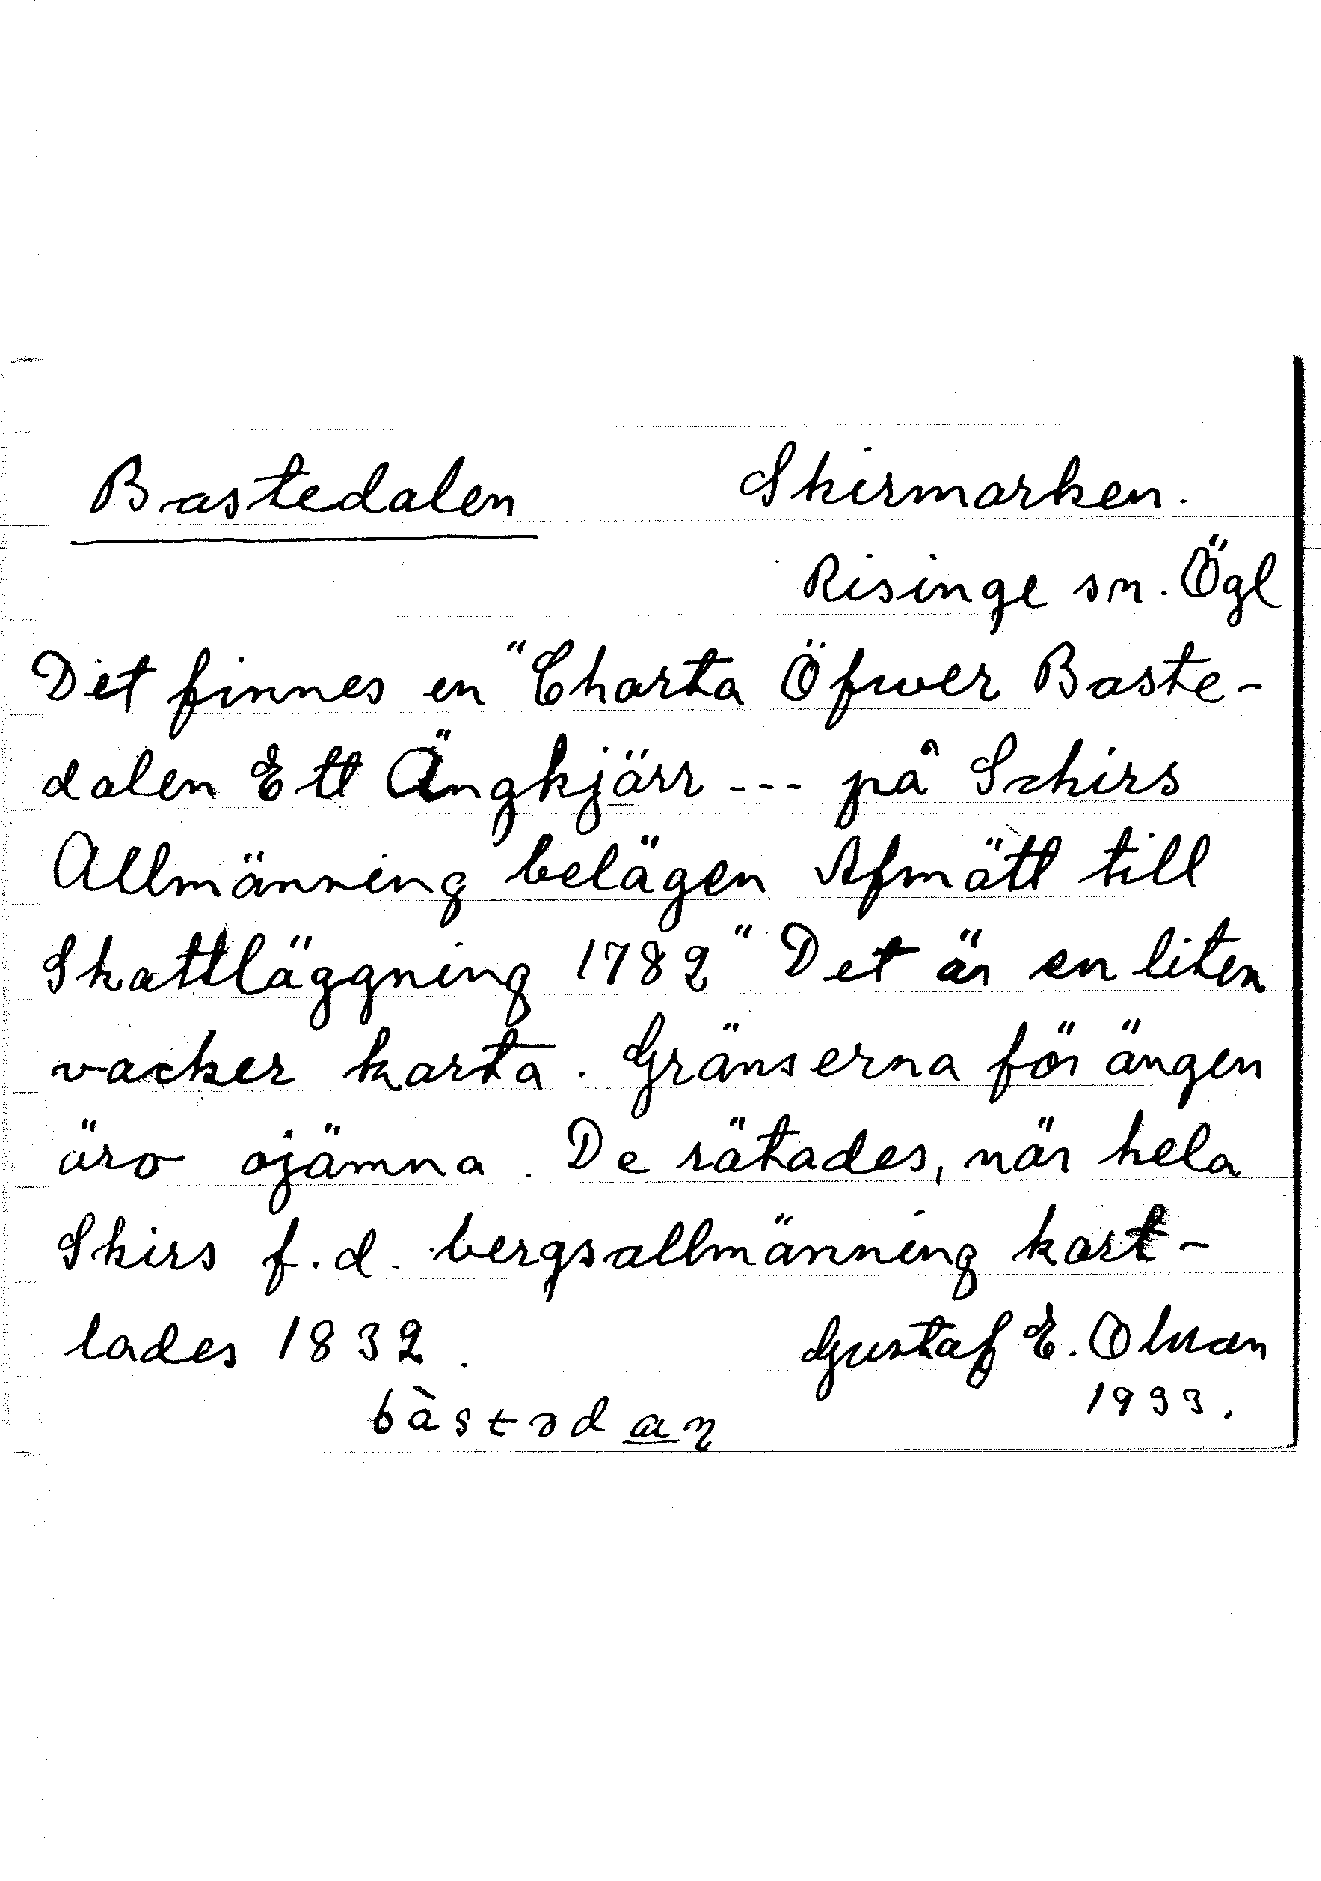 Bastedalen Skirmarken.
Risinge sn. Ögl
Det finnes en "Charta Öfwer Baste-
dalen Ett Ängkjärr --- på Schirs
Allmänning belägen Afmätt till
Skattläggning 1782" Det är en liten
vacker karta. Gränserna för ängen
äro ojämna. De rätades, när hela
Skirs f.d. bergsallmänning kart-
lades 1832.
Gustaf E.
1933.